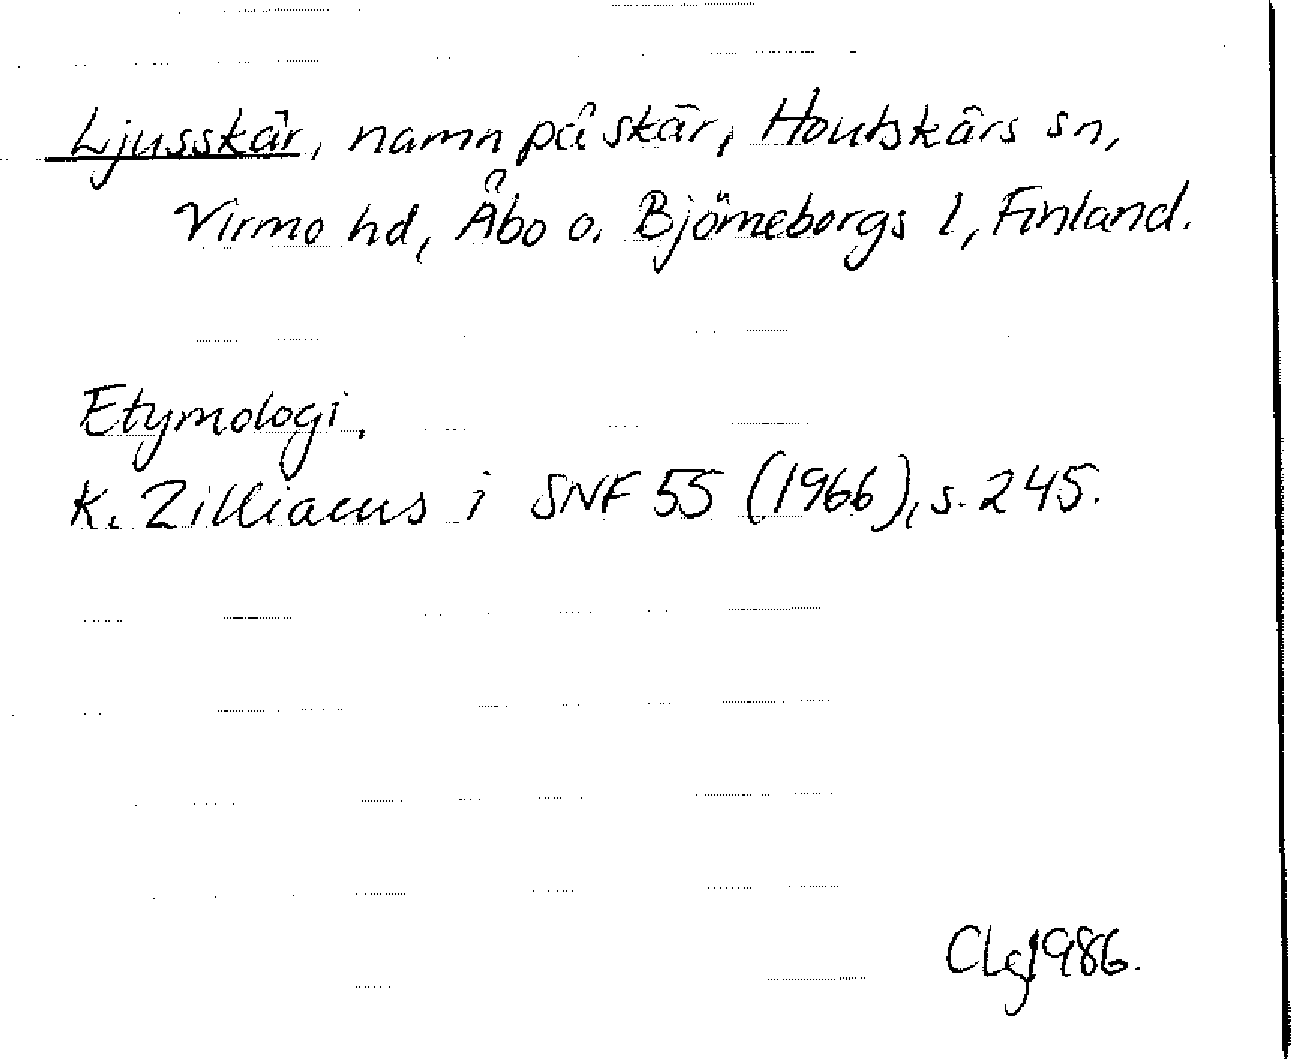 Ljusskär, namn på skär, Houtskärs sn,
Virmo hd, Åbo o. Björneborgs l, Finland.
Etymologi.
K. Zilliacus i SNF 55 (1966), s. 245.
CLg 1986.